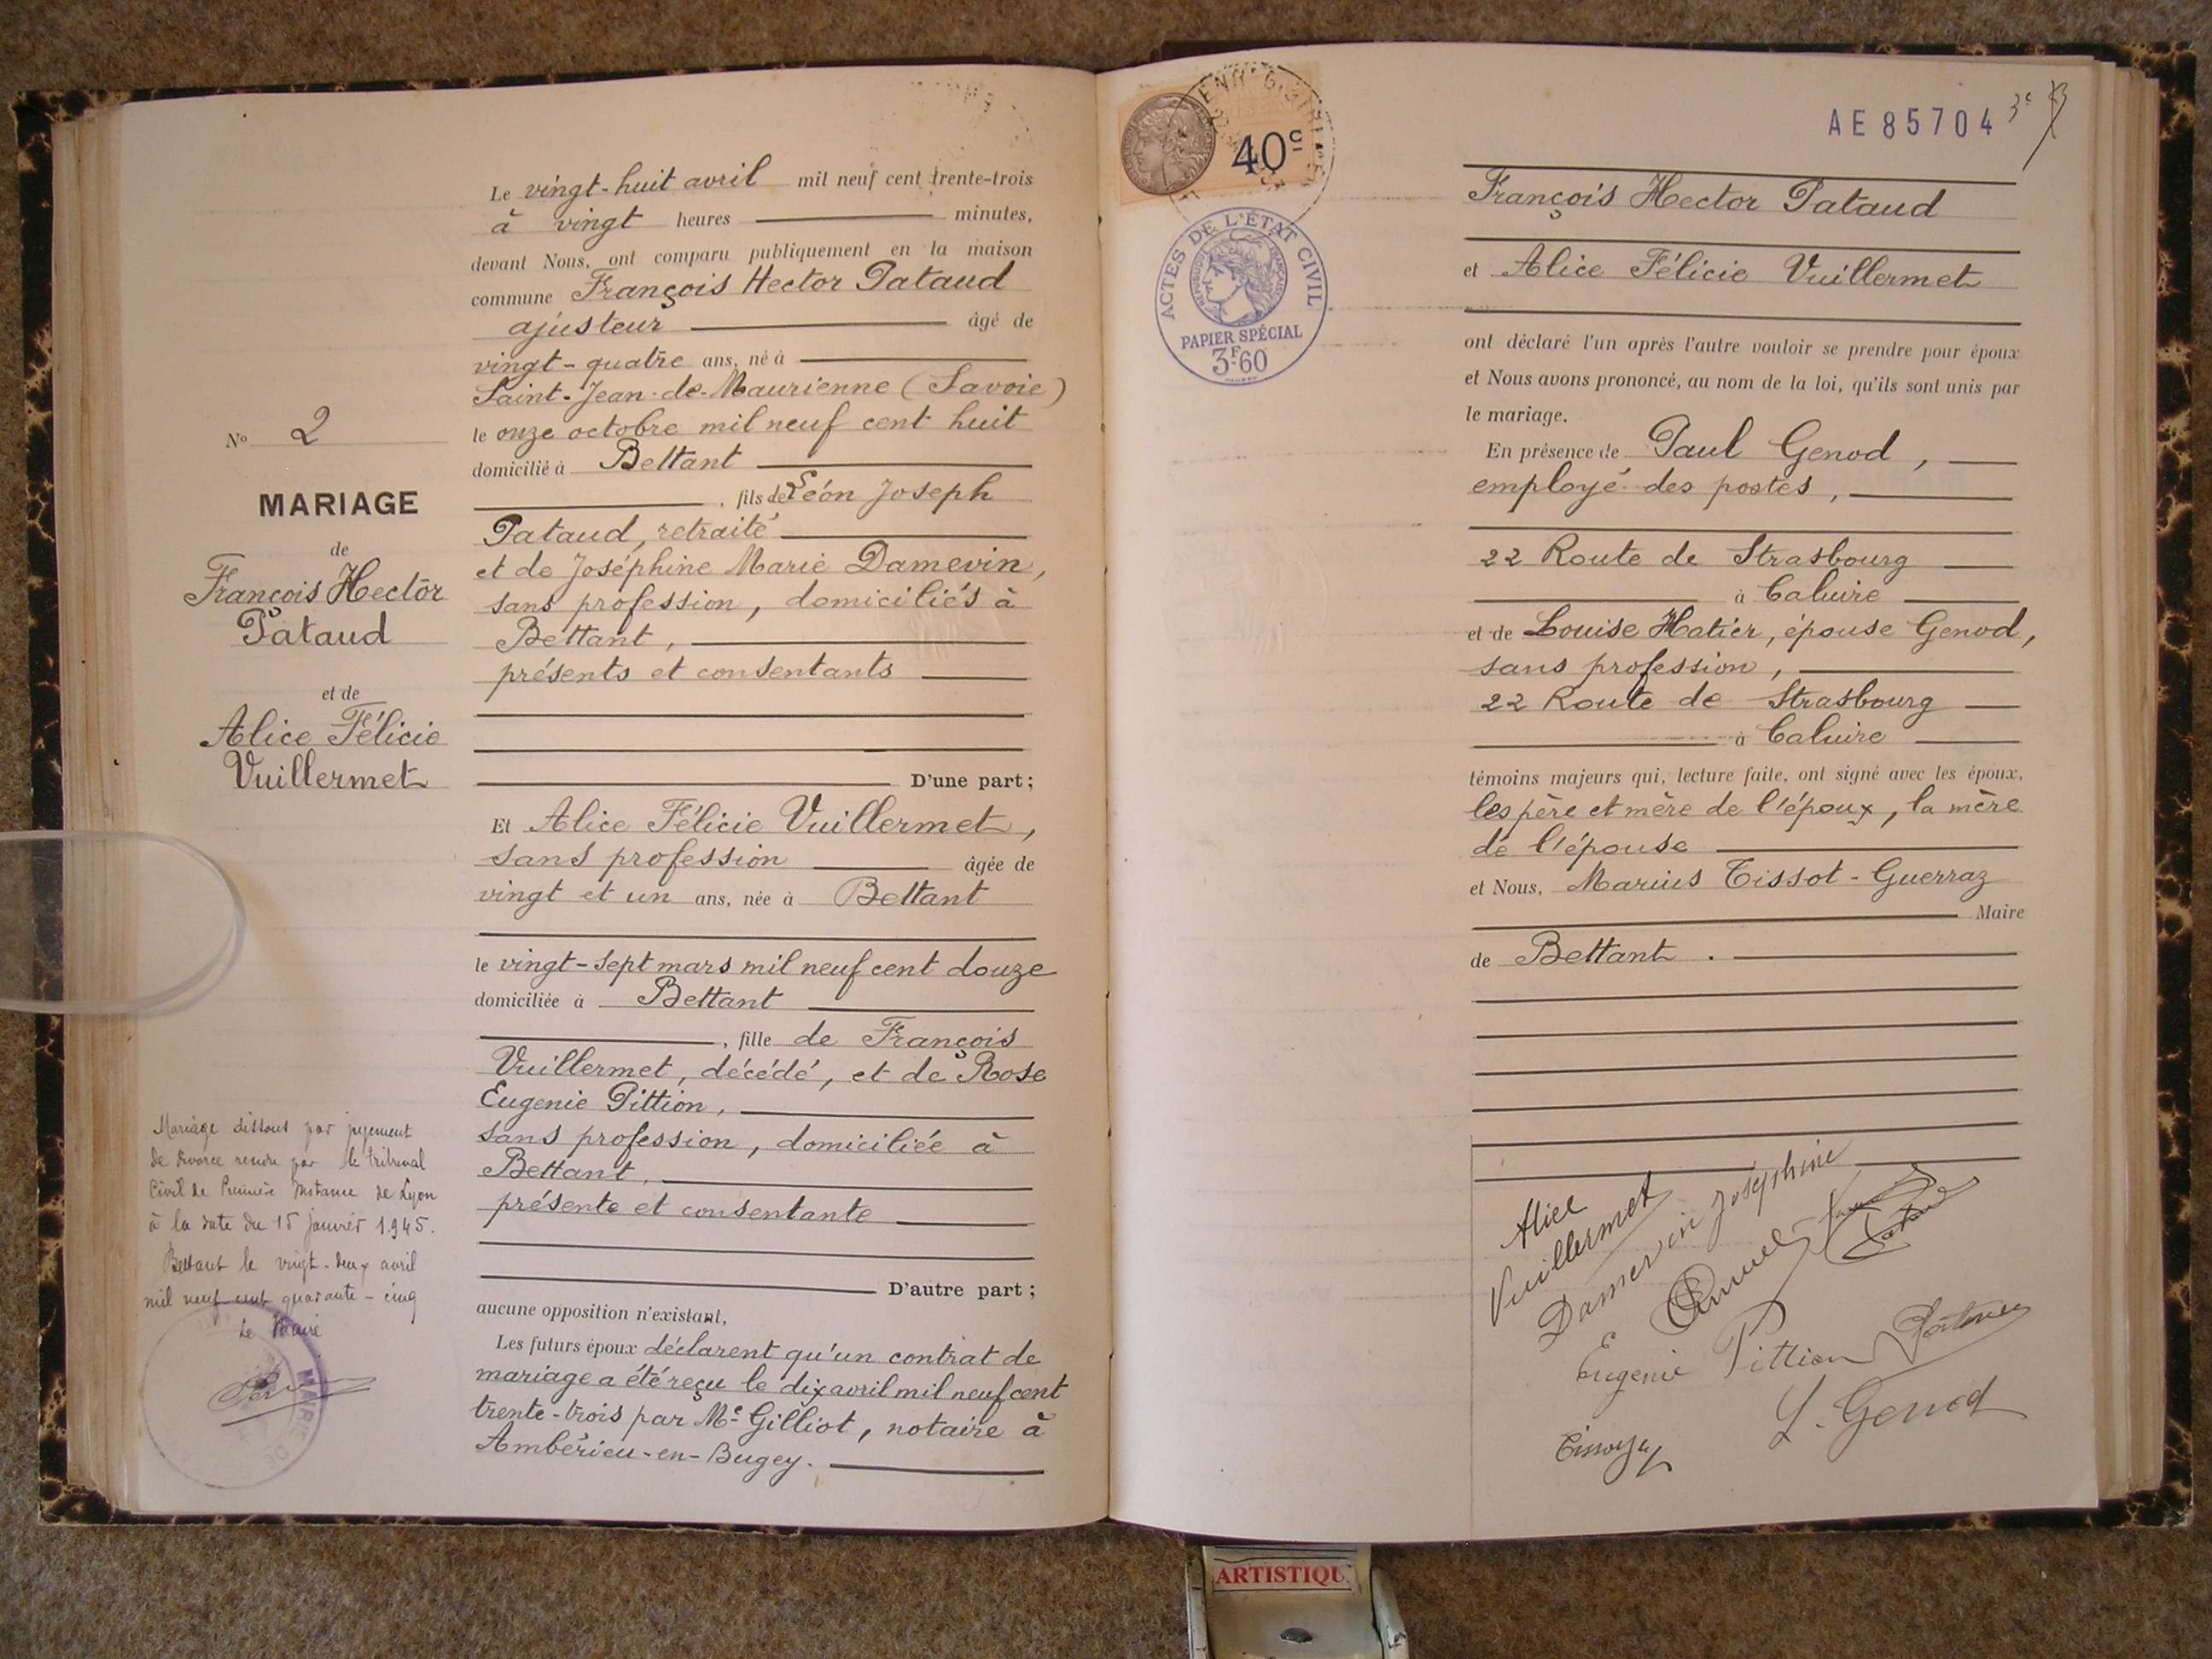 Nº 2
MARIAGE
de
François Hector
Pataud
et de
Alice Félicie
Vuillermet
Mariage dissous par jugement
de divorce rendu par le tribunal
Civil de Première Instance de Lyon
à la date du 15 janvier 1945.
Bettant le vingt-deux avril
mil neuf cent quarante-cinq
Le Maire
MAIRIE DE
Le vingt-huit avril mil neuf cent trente-trois
à vingt heures minutes,
devant Nous, ont comparu publiquement en la maison
commune François Hector Pataud
ajusteur âgé de
vingt-quatre ans, né à
Saint-Jean-de-Maurienne (Savoie)
le onze octobre mil neuf cent huit
domicilié à Bettant
, fils de Léon Joseph
Pataud, retraité
et de Joséphine Marie Damevin,
sans profession, domiciliés à
Bettant,
présents et consentants
D'une part;
Et Alice Félicie Vuillermet,
sans profession âgée de
vingt et un ans, née à Bettant
le vingt-sept mars mil neuf cent douze
domiciliée à Bettant
, fille de François
Vuillermet, décédé, et de Rose
Eugenie Pittion,
sans profession, domiciliée à
Bettant,
présente et consentante
D'autre part;
aucune opposition n'existant,
Les futurs époux déclarent qu'un contrat de
mariage a été reçu le dix avril mil neuf cent
trente-trois par Me Gilliot, notaire à
Ambérieu-en-Bugey.
40c
ACTES DE L'ÉTAT CIVIL
RÉPUBLIQUE FRANÇAISE
PAPIER SPÉCIAL
3F60
AE 85704
François Hector Pataud
et Alice Félicie Vuillermet
ont déclaré l'un après l'autre vouloir se prendre pour époux
et Nous avons prononcé, au nom de la loi, qu'ils sont unis par
le mariage.
En présence de Paul Genod,
employé des postes,
22 Route de Strasbourg
à Caluire
et de Louise Hatier, épouse Genod,
sans profession,
22 Route de Strasbourg
à Caluire
témoins majeurs qui, lecture faite, ont signé avec les époux,
les père et mère de l'époux, la mère
de l'épouse
et Nous, Marius Tissot-Guerraz
Maire
de Bettant.
Alice
Vuillermet
Damevin Joséphine
Eugenie Pittion
L. Genod
ARTISTIQU